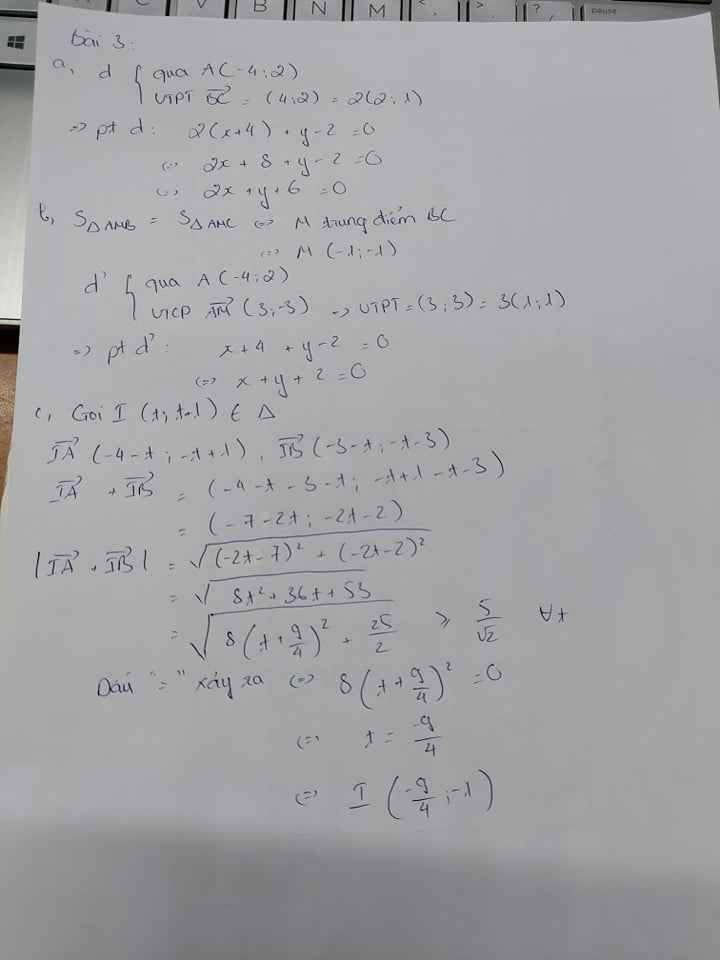 C V B N M < , > . ? / pause
Bài 3:
a, d { qua A(-4;2)
VTPT \vec{BC} = (4;2) = 2(2;1)
=> pt d: 2(x+4) + y-2 =0
<=> 2x + 8 + y-2 =0
<=> 2x + y + 6 =0
b, S_{ΔAMB} = S_{ΔAMC} <=> M trung điểm BC
<=> M (-1;-1)
d' { qua A(-4;2)
VTCP \vec{AM} (3;-3) -> VTPT = (3;3) = 3(1;1)
=> pt d': x+4 + y-2 =0
<=> x + y + 2 =0
c, Gọi I (t; t+1) ∈ Δ
\vec{IA} (-4-t; -t+1), \vec{IB} (-3-t; -t-3)
\vec{IA} + \vec{IB} = (-4-t-3-t; -t+1-t-3)
= (-7-2t; -2t-2)
|\vec{IA} + \vec{IB}| = √((-2t-7)² + (-2t-2)²)
= √(8t² + 36t + 53)
= √(8(t+9/4)² + 25/2) ≥ 5/√2 ∀t
Dấu "=" xảy ra <=> 8(t+9/4)² =0
<=> t = -9/4
<=> I (-9/4; -1)